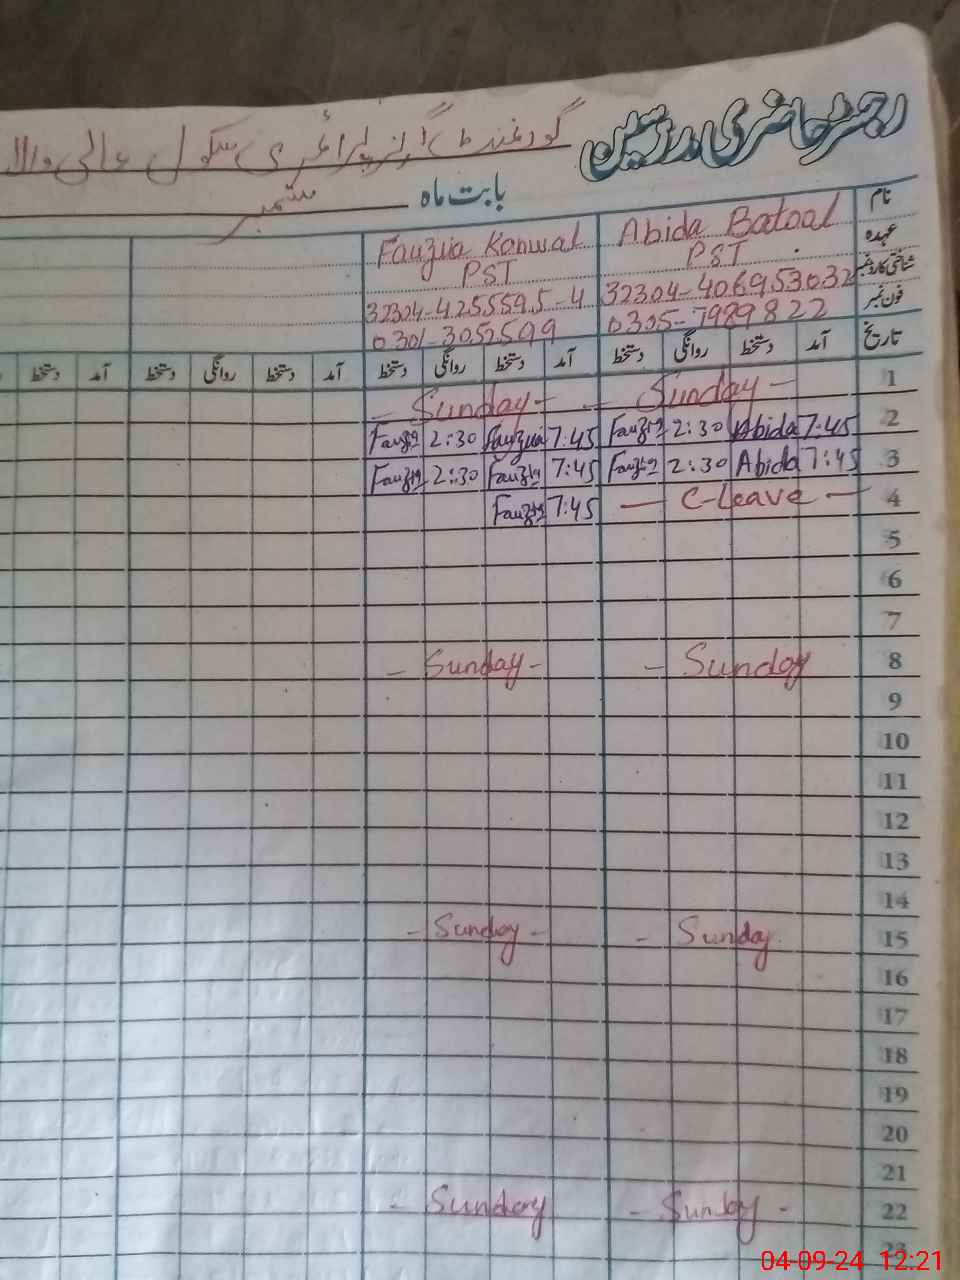 رجسٹر حاضری مدرسین گورنمنٹ گرلز پرائمری سکول عالی والا
بابت ماہ ستمبر
نام Abida Batool Fauzia Kanwal
عہدہ PST PST
شناختی کارڈ نمبر 32304-406953032 32304-4255595-4
فون نمبر 0305-7989822 0301-3052599
تاریخ آمد دستخط روانگی دستخط آمد دستخط روانگی دستخط آمد دستخط روانگی دستخط آمد دستخط
1 - Sunday - - Sunday -
2 7:45 Abida 2:30 Fauzia 7:45 Fauzia 2:30 Fauzia
3 7:45 Abida 2:30 Fauzia 7:45 Fauzia 2:30 Fauzia
4 — C-Leave — 7:45 Fauzia
5
6
7
8 - Sunday - Sunday -
9
10
11
12
13
14
15 - Sunday - Sunday -
16
17
18
19
20
21
22 - Sunday - - Sunday
23
04-09-24 12:21